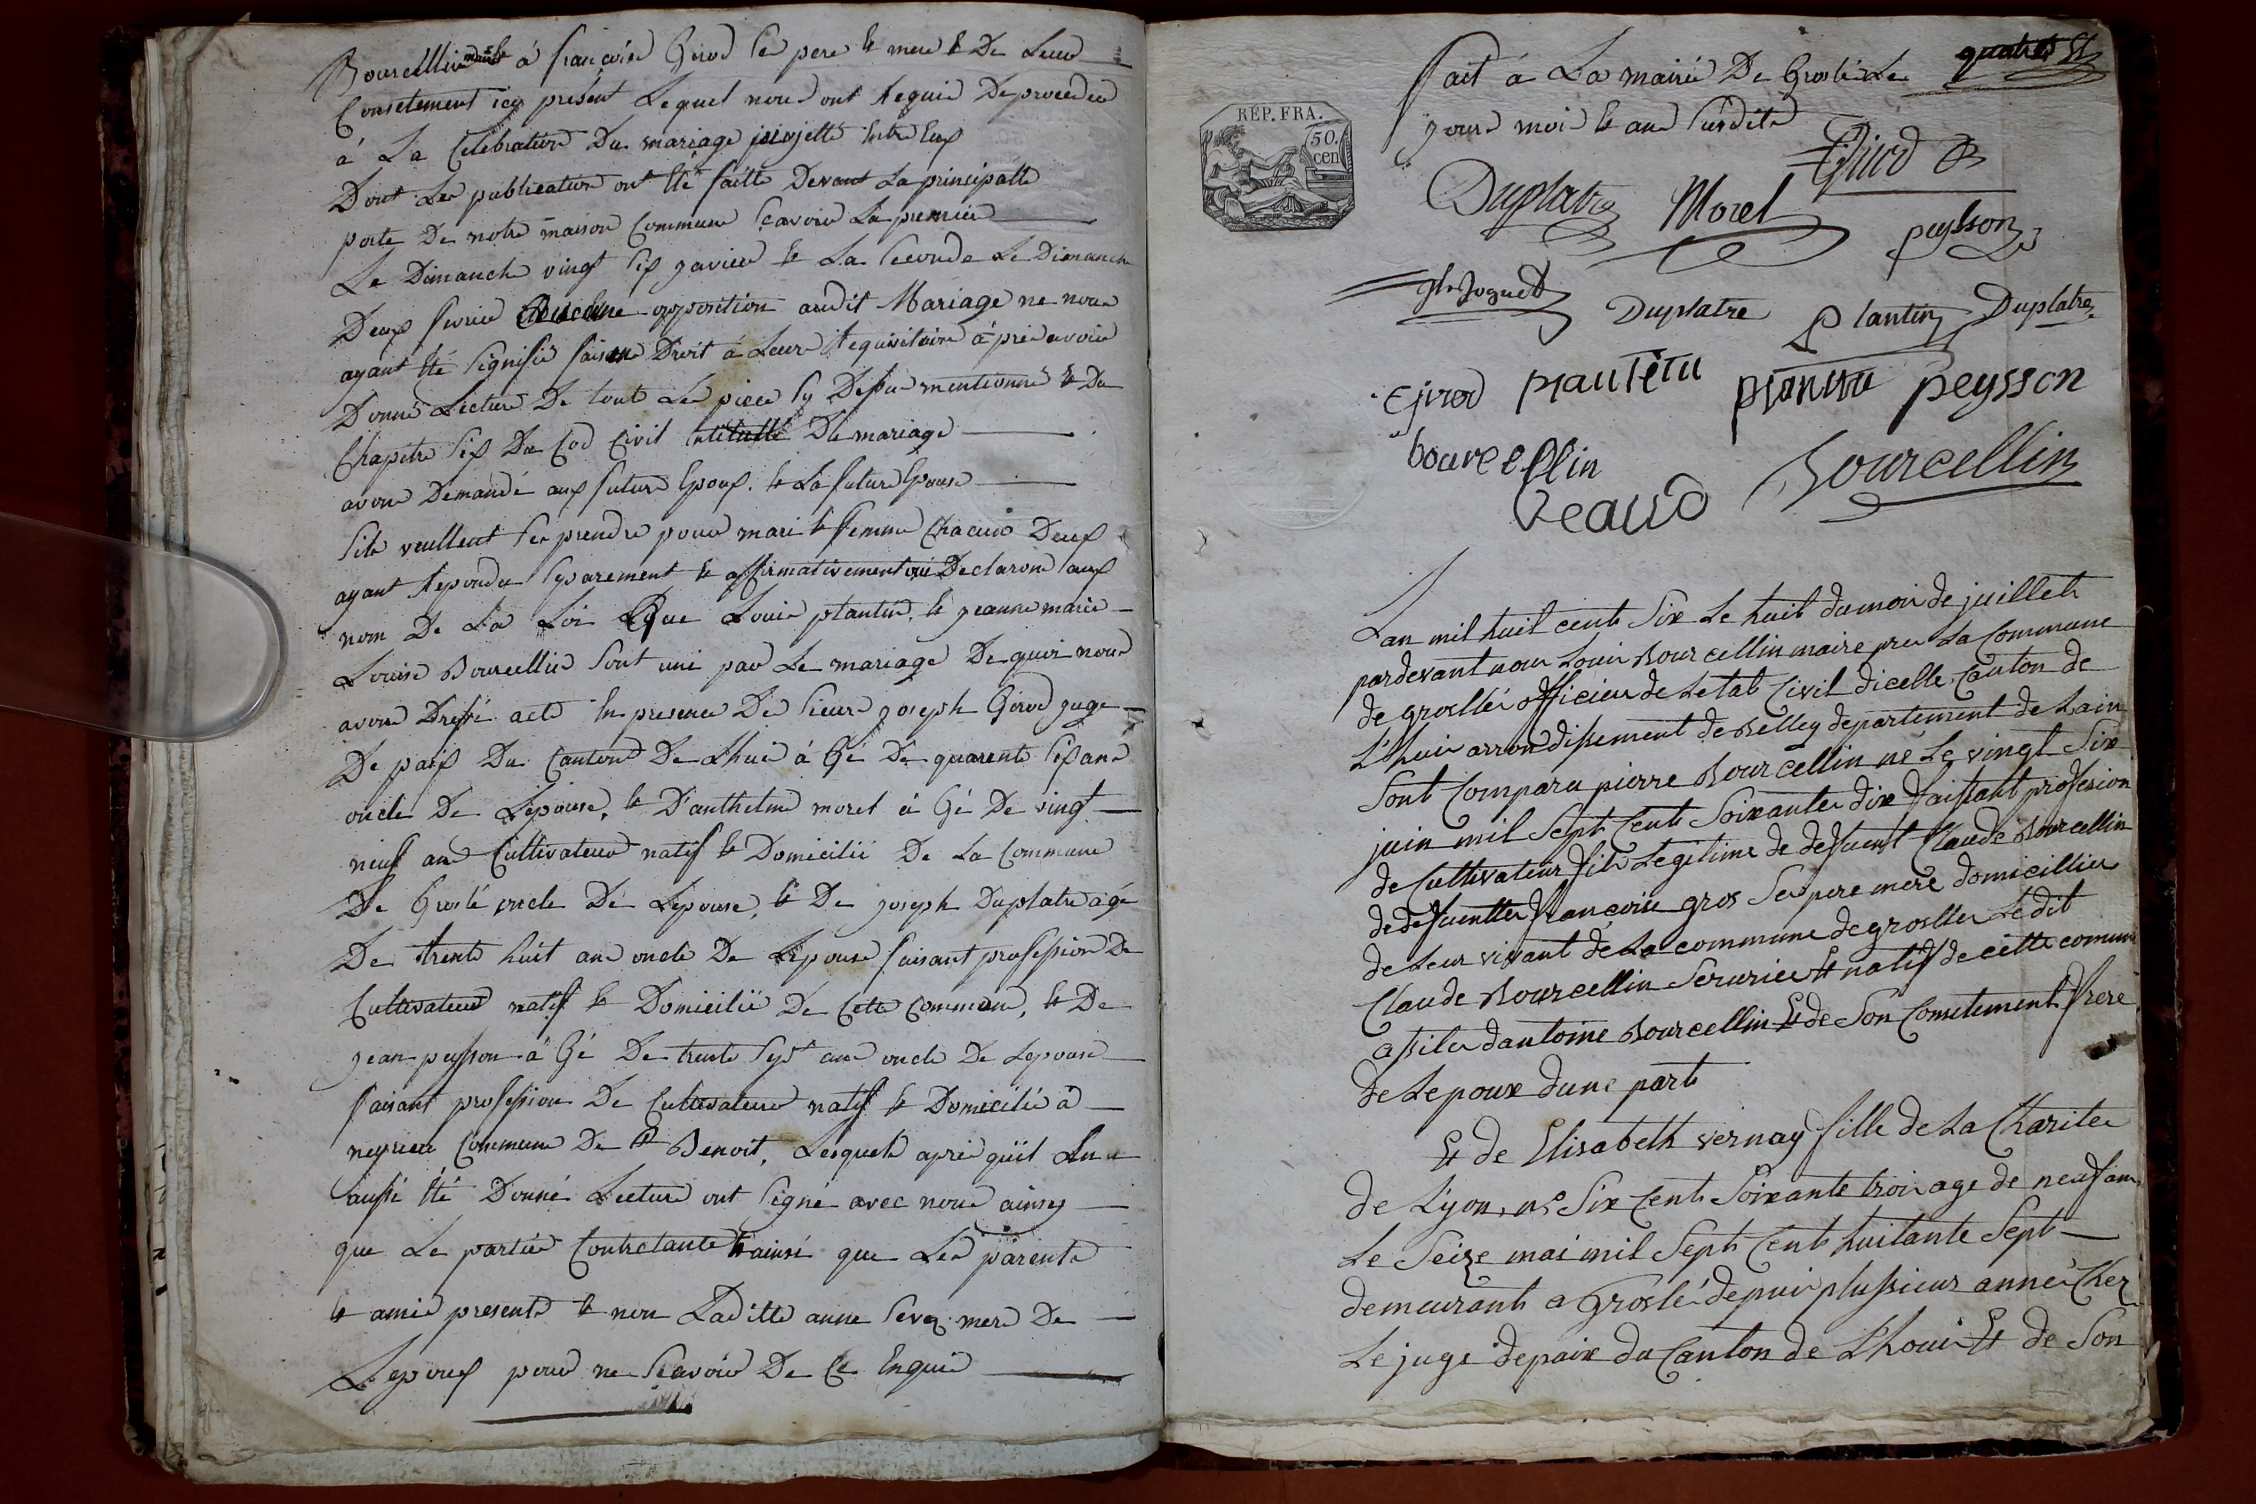 Bourcellin maire et á françoise Girod Ses pere et mere et De Leur
Consetement icy present Lequel nous ont Requis De proceder
á La Celebration Du mariage projetté Entre Eux
Dont Les publication ont Eté faitte Devant La principalle
porte De notre maison Commune Scavoir La premier
Le Dimanche vingt Six janvier et La Seconde Le Dimanche
Deux fevrier Aucune opposition audit Mariage ne nous
ayant Eté Signifié faisons Droit á Leurs Requisitoire á pres avoir
Donné Lecture De tout Les piece Cy Dessus mentionné et Du
Chapitre Six Du Cod Civil Entitullé De mariage
avons Demandé aux futurs Epoux et La future Epouse
Sils veullent Se prendre pour mari et femme Chacun Deux
ayant Repondu Separement et affirmativement oui Declarons aux
nom De La Loi Que Louis plantin et jeanne marie
Louise Bourcellin Sont uni par Le mariage De quoi nous
avons Dressé acte En presence De Sieurs joseph Girod juge
De paix Du Canton De Lhuis á Gé De quarente Six ans
oncle De Lépouse, et Danthelme morel á Gé De vingt
neuf ans Cultivateur natif et Domicilié De La Commune
De Groslé oncle De Lépouse, et De joseph Duplatre agé
De trente huit ans oncle De Lépouse faisant profession De
Cultivateur natif et Domicilié De Cette Commune, et De
jean peysson á Gé De trente Sept ans oncle De Lepouse
faisant profession De Cultivateur natif et Domicilié á
neyrieu Commune De St Benoit, Lesquels apres quil Leur
aussi Eté Donné Lecture ont Signé avec nous ainsy
que Les parties Contractante et ainsi que Les parents
et amis present et non Laditte anne mere De
Lepoux pour ne Scavoir De Ce Enquis
quatres
Fait á La mairie De Groslé Les
jours mois et ans Susdits
RÉP. FRA.
50.
cen
Duplatre Morel Girod
peysson
Duplatre Plantin Duplatre
Girod plantin plantin peysson
bourcellin
Veaud Bourcellin
Lan mil huit cents Six Le huit du mois de juillets
pardevant nous Louis Bourcellin maire pres La Commune
de groslléi officier de Letat Civil dicelle, Canton de
L'huis arrondissement de Belley departement de Lain
Sont Comparu pierre Bourcellin né Le vingt Six
juin mil Sept Cents Soixante dix faissant profession
de Cultivateur fils Legitime de defuent Claude Bourcellin
de defuentte francoise gros Ses pere mere domicillier
de Leur vivant de La commune de groslle Le dit
Claude Bourcellin Serurier Et natif de cette comune
assiter dantoine Bourcellin Et de Son Consetement frere
de Lepoux dune parts
Et de Elisabeth vernay fille de La Charitee
de Lyon, no Six Cents Soixante trois age de neuf ans
Le Seize mai mil Sept Cents huitante Sept
demeurants a Groslé depuis plussieurs année Chez
Le juge depaix du Canton de L'houis Et de Son